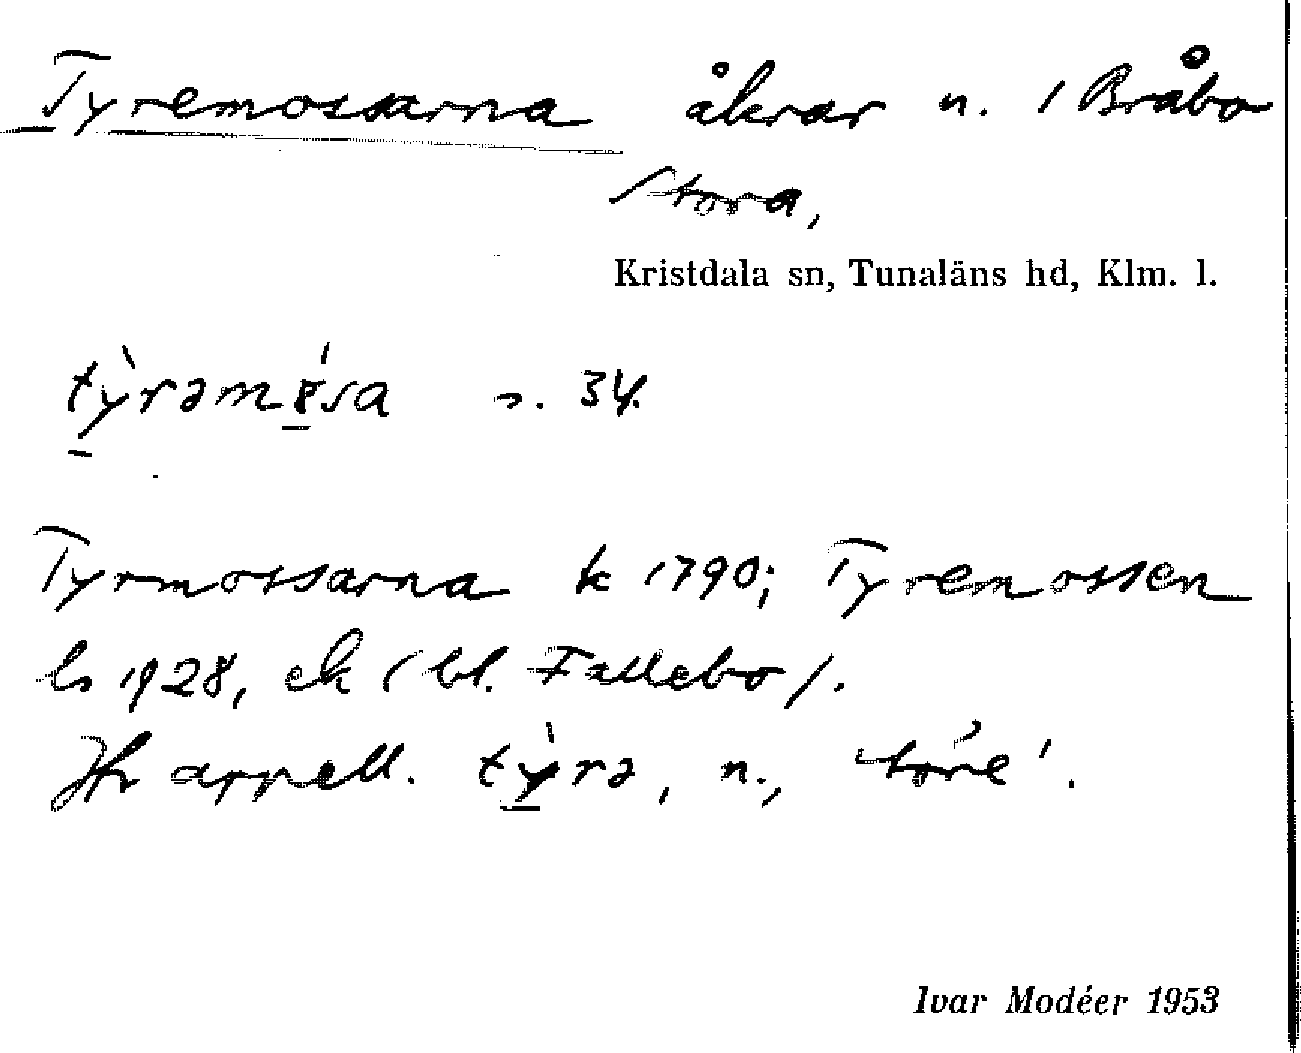 Tyremossarna åkrar n. / Bråbo
Stora,
Kristdala sn, Tunaläns hd, Klm. l.
tỳ̱rəmȣ̱́sa s. 34.
Tyrmossarna k 1790; Tyremossen
ls 1928, ek (bl. Fallebo).
Jfr appell. tỳ̱rə, n., 'töre'.
Ivar Modéer 1953